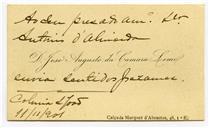 Ao seu presado am.º Snr.
Antonio d'Almeida
D. José Augusto da Camara Leme
envia sentidos pezames.
Colonia S. José
11/11/901
Calçada Marquez d'Abrantes, 48, 1.º E.